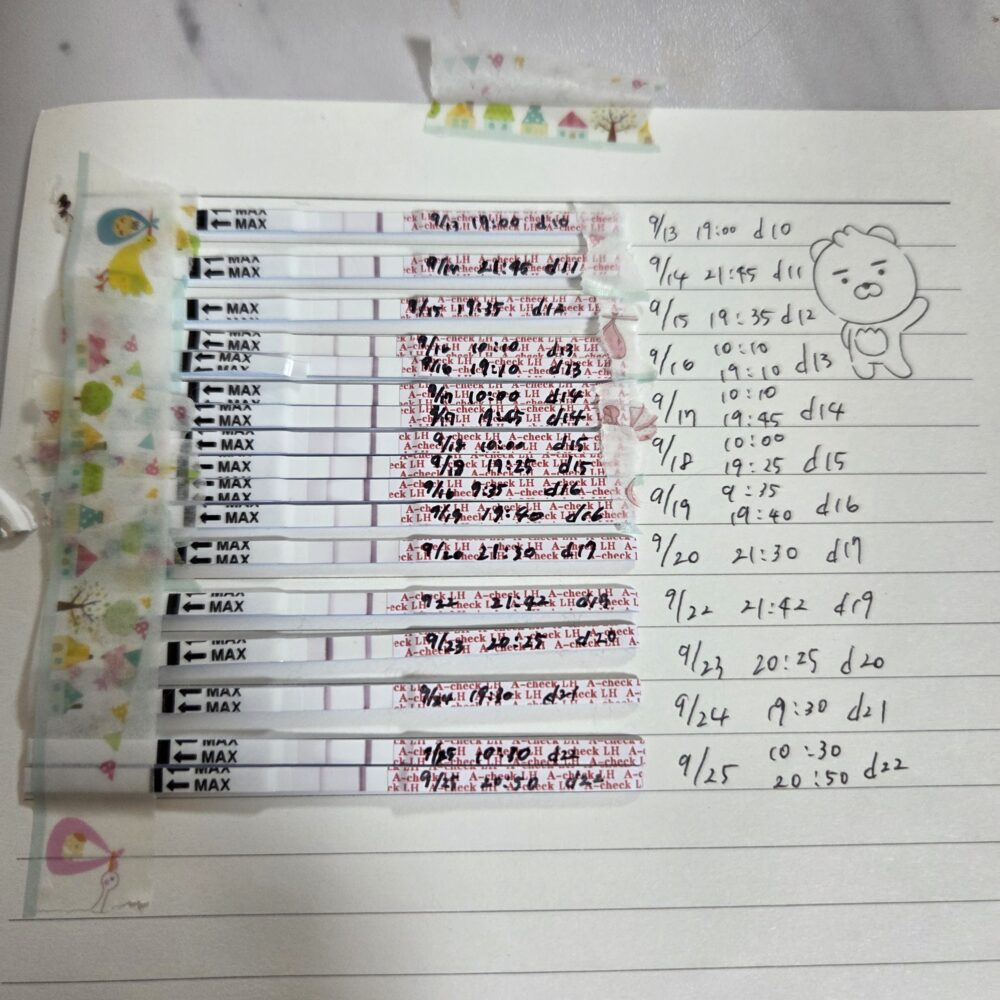 MAX
MAX A-check LH 9/13 19:00 d10
9/13 19:00 d10
MAX
MAX A-check LH 9/14 21:45 d11
9/14 21:45 d11
MAX A-check LH 9/15 19:35 d12
9/15 19:35 d12
MAX A-check LH 9/16 10:10 d13
MAX A-check LH 9/16 19:10 d13
9/16 10:10 d13
19:10
MAX A-check LH 9/17 10:00 d14
MAX A-check LH 9/17 19:45 d14
9/17 10:10 d14
19:45
MAX A-check LH 9/18 10:00 d15
MAX A-check LH 19:25 d15
9/18 10:00 d15
19:25
MAX A-check LH 9/16 9:35 d16
MAX A-check LH 9/19 19:40 d16
9/19 9:35 d16
19:40
MAX
MAX A-check LH 9/20 21:30 d17
9/20 21:30 d17
MAX
MAX A-check LH 9/22 21:42 d19
9/22 21:42 d19
MAX
MAX A-check LH 9/23 20:25 d20
9/23 20:25 d20
MAX
MAX A-check LH 9/24 19:30 d21
9/24 19:30 d21
MAX
MAX A-check LH 9/25 10:30 d22
MAX A-check LH 9/25 20:50 d22
9/25 10:30 d22
20:50